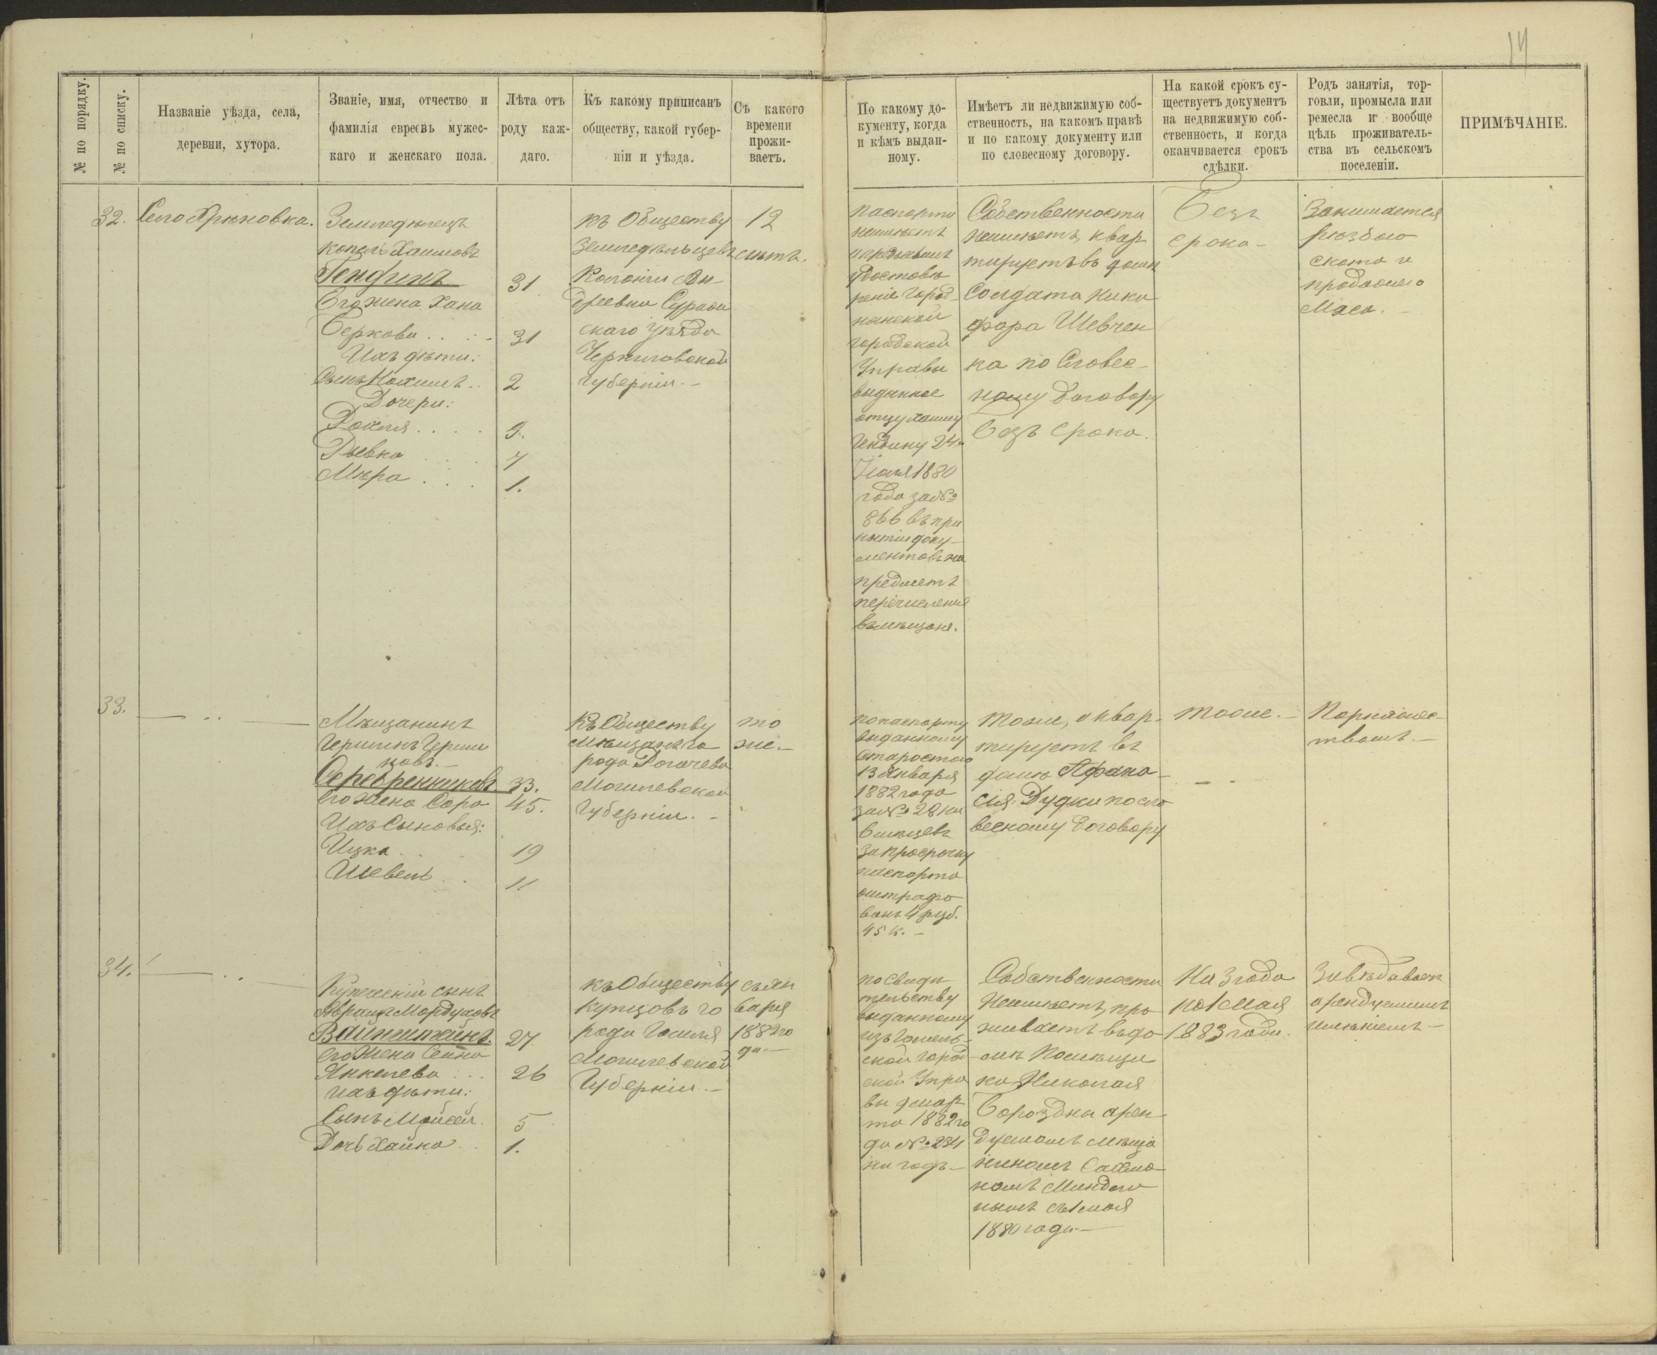 14
№ по порядку.
№ по списку.
Названіе уѣзда, села,
деревни, хутора.
Званіе, имя, отчество и
фамилія евреевъ мужес-
каго и женскаго пола.
Лѣта отъ
роду каж-
даго.
Къ какому приписанъ
обществу, какой губер-
ніи и уѣзда.
Съ какого
времени
прожи-
ваетъ.
По какому до-
кументу, когда
и кѣмъ выдан-
ному.
Имѣетъ ли недвижимую соб-
ственность, на какомъ правѣ
и по какому документу или
по словесному договору.
На какой срокъ су-
ществуетъ документъ
на недвижимую соб-
ственность, и когда
оканчивается срокъ
сдѣлки.
Родъ занятія, тор-
говли, промысла или
ремесла и вообще
цѣль проживатель-
ства въ сельскомъ
поселеніи.
ПРИМѢЧАНІЕ.
32.
Село
Земледѣлецъ
Копель Хаимовъ
Гендинъ
31
Его жена Хана
Беркова
31
Ихъ дѣти:
Сынъ
2
Дочери:
9.
7
1.
къ Обществу
Земледѣльцевъ
Колоніи
Деревни Сураж
скаго уѣзда
Черниговской
Губерніи. –
12
лѣтъ.
паспорта
неимѣетъ
городской
Управы
выданное
отцу Хаиму
Гендину 24
Іюля 1880
года за №
866 въ при
нятіи доку
ментовъ на
предметъ
перечисленія
въ мѣщане.
Собственности
неимѣетъ, квар
тируетъ въ домѣ
Солдата Ники
фора Шевчен
ка по Словес
ному Договору
безъ срока.
Безъ
срока –
Занимается
рѣзбою
скота и
продажею
Мяса. –
33.
Мѣщанинъ
Серебренниковъ
33.
Его жена Сора
45.
Ихъ Сыновья:
Ицка
19
Шевель
11
Къ Обществу
Мѣщанъ го
рода Рогачева
Могилевской
Губерніи. –
то
же. –
по паспорту
выданному
Старостою
13 Января
1882 года
за № 28 на
6 мѣсяцевъ
за просрочку
паспорта
оштрафо
ванъ 4 руб.
45 к. –
Тоже, квар
тируетъ въ
домѣ Афана
сія Дудки по сло
весному Договору
тоже. –
Портняжес
твомъ. –
34.
Купеческій сынъ
Абрамъ Мордуховъ
Вайнштейнъ
27
Его жена
Янкелева
26
ихъ дѣти:
Сынъ Мойсей
5
Дочь Хайка
1.
къ Обществу
купцовъ го
рода Гомеля
Могилевской
Губерніи. –
съ Ян
варя
1882 го
да. –
по свиди
тельству
выданному
изъ Гомель
ской город
ской Упра
вы
та 1882 го
да № 234
на годъ –
Собственности
Неимѣетъ, про
живаетъ въ до
мѣ Помѣщи
ка Николая
Бороздна арен
дуемомъ мѣща
ниномъ
съ 1 мая
1880 года –
На 3 года
по 1 Мая
1883 года.
Завѣдываетъ
арендуемымъ
имѣніемъ –